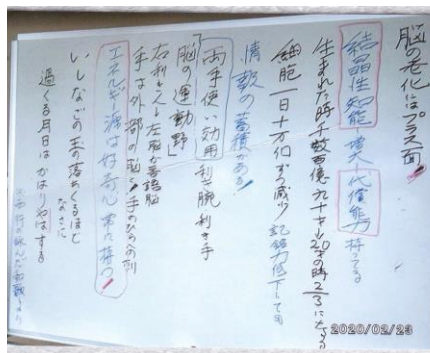 脳の老化はプラス面
結晶性知能増大 代償能力 持ってる
生まれた時千数百億 九十才20才の時2/3になる
細胞一日十万個ずつ減少 記銘力低下しても
情報の蓄積がある
両手使い効用 利き腕利き手
脳の運動野
右利き 左脳が言語脳
手は外部の脳 手のひらへの刺
エネルギー源は好奇心 常に持つ
いしなごの玉の落ちくるほど
なさに
過ぐる月日はかはりやはする
2020/02/23